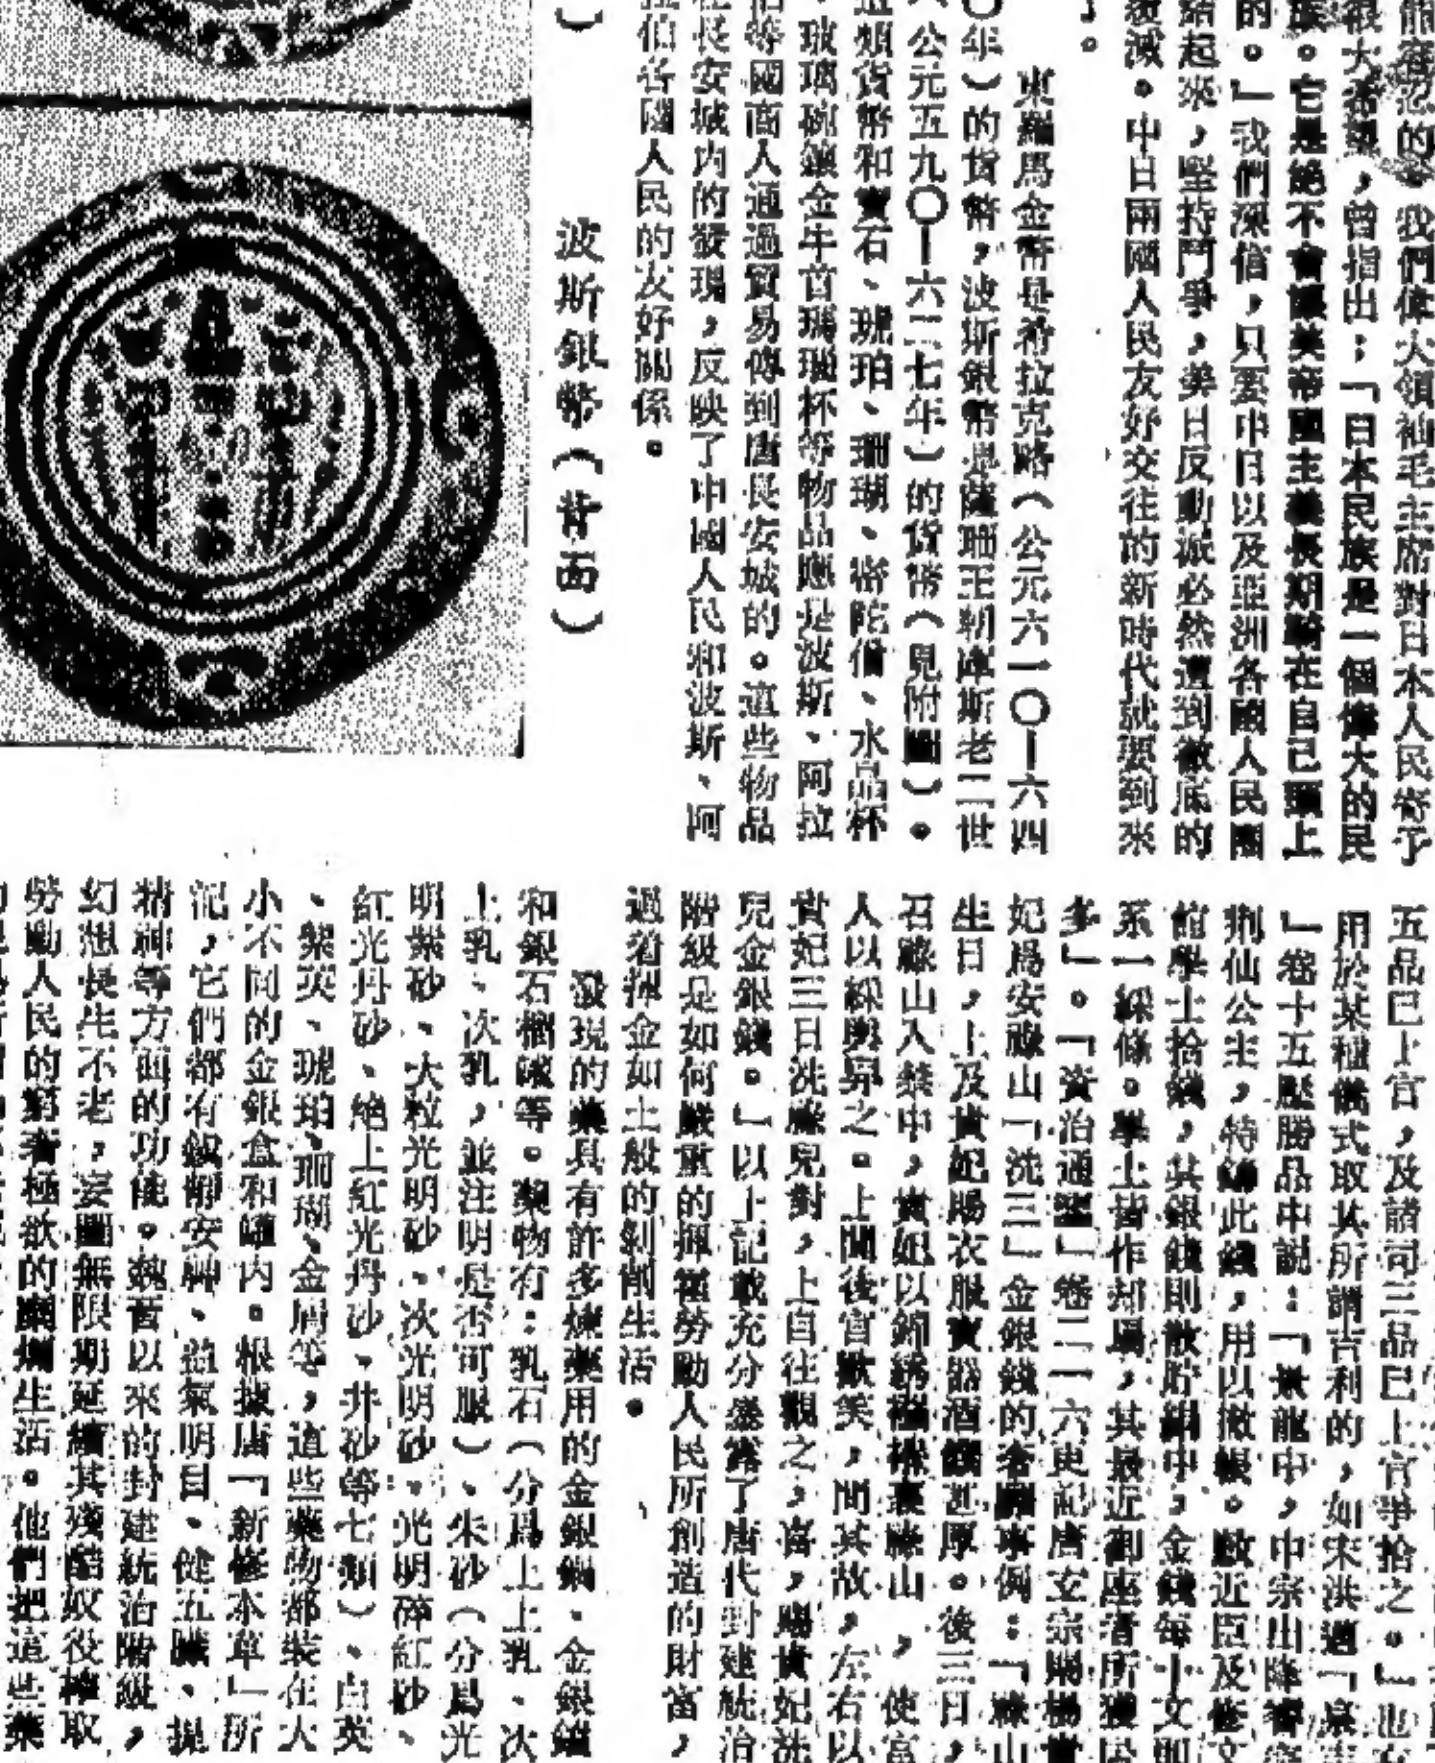 能容忍的。我們偉大領袖毛主席對日本人民寄予
很大希望，曾指出：「日本民族是一個偉大的民
族。它是絕不會讓美帝國主義長期騎在自己頭上
的。」我們深信，只要中日以及亞洲各國人民團
結起來，堅持鬥爭，美日反動派必然遭到徹底的
滅。中日兩國人民友好交往的新時代就要到來
。
東羅馬金幣是希拉克略（公元六一〇—六四
〇年）的貨幣，波斯銀幣是薩珊王朝庫斯老二世
公元五九〇—六二七年）的貨幣（見附圖）。
這類貨幣和寶石、琥珀、珊瑚、密陀僧、水晶杯
、玻璃碗鑲金牛首瑪瑙杯等物品應是波斯、阿拉
伯等國商人通過貿易傳到唐長安城的。這些物品
在長安城內的發現，反映了中國人民和波斯、阿
拉伯各國人民的友好關係。
）
波斯銀幣（背面）
五品已上官，及諸司三品已上官爭拾之。」也
用於某種儀式取其所謂吉利的，如宋洪遵「泉
」卷十五壓勝品中說：「景龍中，中宗出降
荆仙公主，特鑄此錢，用以撒帳。敕近臣及修文
館學士拾錢，其銀錢則散貯絹中，金錢每十文則
系一綵條。學士皆作却屬，其最近御座者所獲
多」。「資治通鑒」卷二一六更記唐玄宗賜楊
妃爲安祿山「洗三」金銀錢的奢闊事例：「祿山
生日，上及貴妃賜衣服寶器酒饌甚厚。後三日，
召祿山入禁中，貴妃以錦綉襁褓裹祿山，使宮
人以綵輿舁之。上聞後宮歡笑，問其故，左右以
貴妃三日洗祿兒對，上自往觀之，喜，賜貴妃洗
兒金銀錢。」以上記載充分暴露了唐代封建統治
階級是如何嚴重的搜刮勞動人民所創造的財富，
過着揮金如土般的剝削生活。
發現的藥具有許多煉藥用的金銀鍋、金銀
和銀石榴罐等。藥物有：乳石（分爲上上乳、次
上乳、次乳，並注明是否可服）、朱砂（分爲光
明紫砂、大粒光明砂、次光明砂、光明碎紅砂、
紅光丹砂、絶上紅光丹砂、井砂等七類）、白英
、紫英、琥珀、珊瑚、金屑等，這些藥物都裝在大
小不同的金銀盒和罐內。根據唐「新修本草」所
記，它們都有鎮靜安神、益氣明目、健五臟、提
精神等方面的功能。魏晉以來的封建統治階級，
幻想長生不老，妄圖無限期延續其殘酷奴役榨取
勞動人民的窮奢極欲的腐爛生活。他們把這些藥